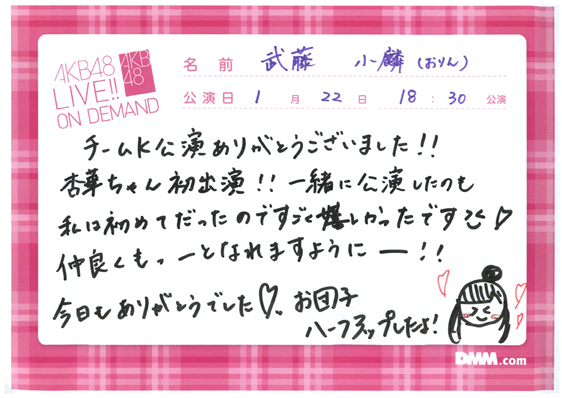 AKB48
LIVE!!
ON DEMAND
AKB
48
名前 武藤 小麟(おりん)
公演日 1月 22日 18:30 公演
チームK公演ありがとうございました!!
杏華ちゃん初出演!! 一緒に公演したのも
私は初めてだったのですごく嬉しかったです♡
仲良くもっーとなれますようにー!!
今日もありがとうでした♡。お団子
ハーフアップしたよ!
DMM.com